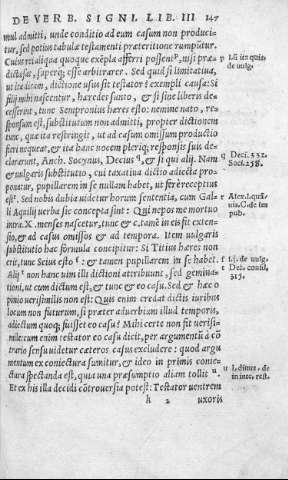 DE VERB. SIGNI. LIB. III 147
mul admitti, unde conditio ad eum casum non produci-
tur, sed potius tabulæ testamenti præteritione rumpātur.
Cuius rei aliqua quoque exēpla afferri possent, nisi præ-
dictas, sæpeq; esse arbitrarer. Sed quid si limitatiua,
ut ita dicam, dictione usus sit testator? exempli causa: Si
filij mihi nascentur, hæredes sunto, & si sine liberis de-
cesserint, tunc Sempronius hæres esto: nemine nato, re-
sponsum est, substitutum non admitti, propter dictionem
tunc, quæ ita restringit, ut ad casum omissum productio
fieri nequeat, & ita hanc uocem pleriq; responsis suis de-
clararunt, Anch. Socynus, Decius, & si qui alij. Nam
& uulgaris substitutio, cui taxatiua dictio adiecta pro-
ponatur, pupillarem in se nullam habet, ut ferè receptus
est. Sed nobis dubia uidetur horum sententia, cum Gal-
li Aquilij uerba sic concepta sint: Qui nepos me mortuo
intra. X. menses nascetur, tunc &c. tamē in eis fit exten-
sio, & ad casus omissos & ad tempora. Item uulgaris
substitutio hac formula concipitur: Si Titius hæres non
erit, tunc Seius esto: & tamen pupillarem in se habet.
Alij non hanc uim illi dictioni attribuunt, sed gemina-
tioni, ut cum dictum est, tunc & eo casu. Sed & hæc o
pinio uerisimilis non est: Quis enim credat dictis iuribus
locum non futurum, si præter aduerbium illud temporis,
adiectum quoq; fuisset eo casu? Mihi certe non fit uerisi-
mile: cum enim testator eo casu dicit, per argumentū à cō
trario sensu uidetur cæteros casus excludere: quod argu
mentum ex coniectura sumitur, & ideo in primis conie-
ctura spectanda est, quia una præsumptio aliam tollit u.
Et ex his illa decidi cōtrouersia potest: Testator uentrem
h 2 uxoris
de uulg.
Deci. 332.
Soci. 258.
pub.
de uulg.
Dec. consil.